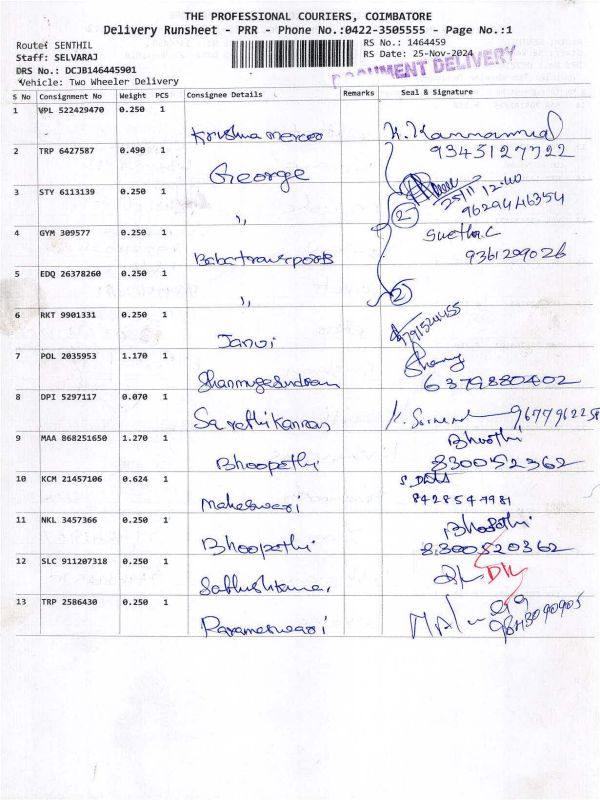 THE PROFESSIONAL COURIERS, COIMBATORE
Delivery Runsheet - PRR - Phone No.:0422-3505555 - Page No.:1
Route: SENTHIL
RS No.: 1464459
Staff: SELVARAJ
RS Date: 25-Nov-2024
DRS No.: DCJB146445901
DOCUMENT DELIVERY
Vehicle: Two Wheeler Delivery
S No Consignment No Weight PCS Consignee Details Remarks Seal & Signature
1 VPL 522429470 0.250 1
9345127722
2 TRP 6427587 0.490 1
George
25/11 12.40
3 STY 6113139 0.250 1
9629446354
〃 2
4 GYM 309577 0.250 1
Swetha.C
9361299026
5 EDQ 26378260 0.250 1
〃 2
6 RKT 9901331 0.250 1
Janvi
7 POL 2035953 1.170 1
6379880402
8 DPI 5297117 0.070 1
9 MAA 868251650 1.270 1
Bhoopathi 830052362
10 KCM 21457106 0.624 1
Maheswari 8428547981
11 NKL 3457366 0.250 1
Bhoopathi 8300520362
12 SLC 911207318 0.250 1
13 TRP 2586430 0.250 1
Parameswari